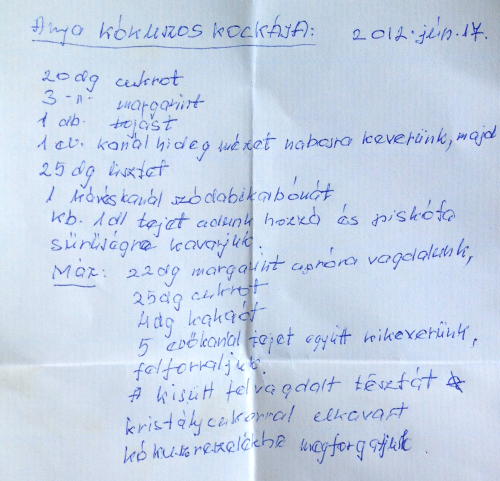 Anya KÓKUSZOS KOCKÁJA: 2012. jún. 17.
20 dg cukrot
3 -"- margarint
1 db. tojást
1 ev. kanál hideg mézet habosra keverünk, majd
25 dg lisztet
1 kávéskanál szódabikarbónát
kb. 1 dl tejet adunk hozzá és piskóta
sűrűségre kavarjuk.
Máz: 22 dg margarint apróra vagdalunk,
25 dg cukrot
4 dg kakaót
5 evőkanál tejet együtt kikeverünk,
felforraljuk.
A kisütt felvagdalt tésztát
kristálycukorral elkavart
kókuszreszelékbe megforgatjuk.